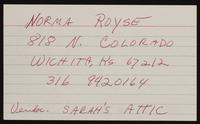 NORMA ROYSE
818 N. COLORADO
WICHITA, KS 67212
316 9420164
Vendor. SARAH'S ATTIC